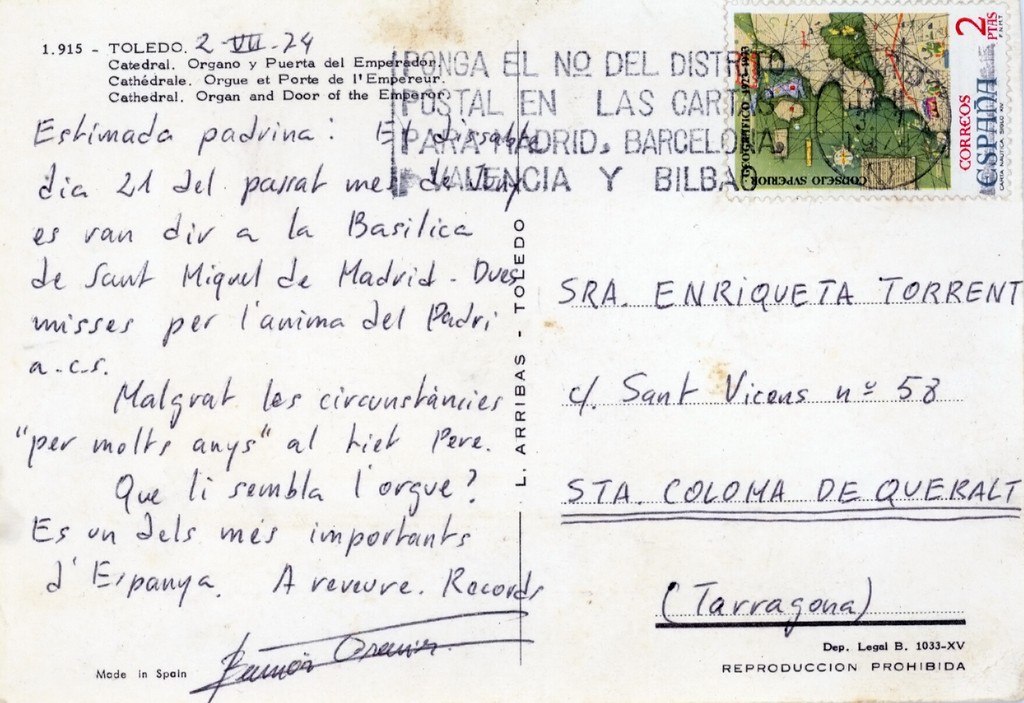 1.915 - TOLEDO. 2-VII-74
Catedral. Organo y Puerta del Emperador.
Cathédrale. Orgue et Porte de l'Empereur.
Cathedral. Organ and Door of the Emperor.
Estimada padrina: El dissabte
dia 21 del passat mes de Juny
es van dir a la Basilica
de Sant Miquel de Madrid - Dues
misses per l'anima del Padri
a.c.s.
Malgrat les circunstàncies
"per molts anys" al tiet Pere.
Que li sembla l'orgue?
Es un dels més importants
d'Espanya. A reveure. Records
Ramón
Made in Spain
L. ARRIBAS - TOLEDO
PONGA EL Nº DEL DISTRITO
POSTAL EN LAS CARTAS
PARA MADRID, BARCELONA,
VALENCIA Y BILBAO
CONSEJO SVPERIOR
GEOGRAFICO 1923-1973
2 PTAS
CORREOS
ESPAÑA
F.N.M.T.
CARTA NAUTICA SIGLO XIV
SRA. ENRIQUETA TORRENT
c/. Sant Vicens nº 58
STA. COLOMA DE QUERALT
(Tarragona)
Dep. Legal B. 1033-XV
REPRODUCCION PROHIBIDA